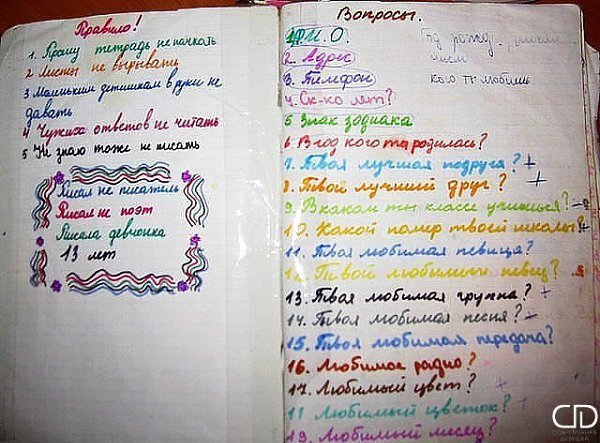 Правило!
1. Прошу тетрадь не пачкать
2 Листы не вырывать
3 Маленьким детишкам в руки не
давать
4 Чужих ответов не читать
5 Не знаю тоже не писать
Писал не писатель
Писал не поэт
Писала девчонка
13 лет
Вопросы.
1 Ф.И.О.
2. Адрес
3. Телефон
4. Ск-ко лет?
Год рожд.
кого ты любишь
5 Знак зодиака
6 В год кого ты родилась?
7. Твоя лучшая подруга? +
8. Твой лучший друг? +
9. В каком ты классе учишься?
10. Какой номер твоей школы? +
11. Твоя любимая певица?
12. Твой любимый певец?
13. Твоя любимая группа? +
14. Твоя любимая песня? +
15. Твоя любимая передача?
16. Любимое радио?
17. Любимый цвет? +
11 Любимый цветок? +
19. Любимый месяц?
СОВРЕМЕННАЯ
ДЕВУШКА